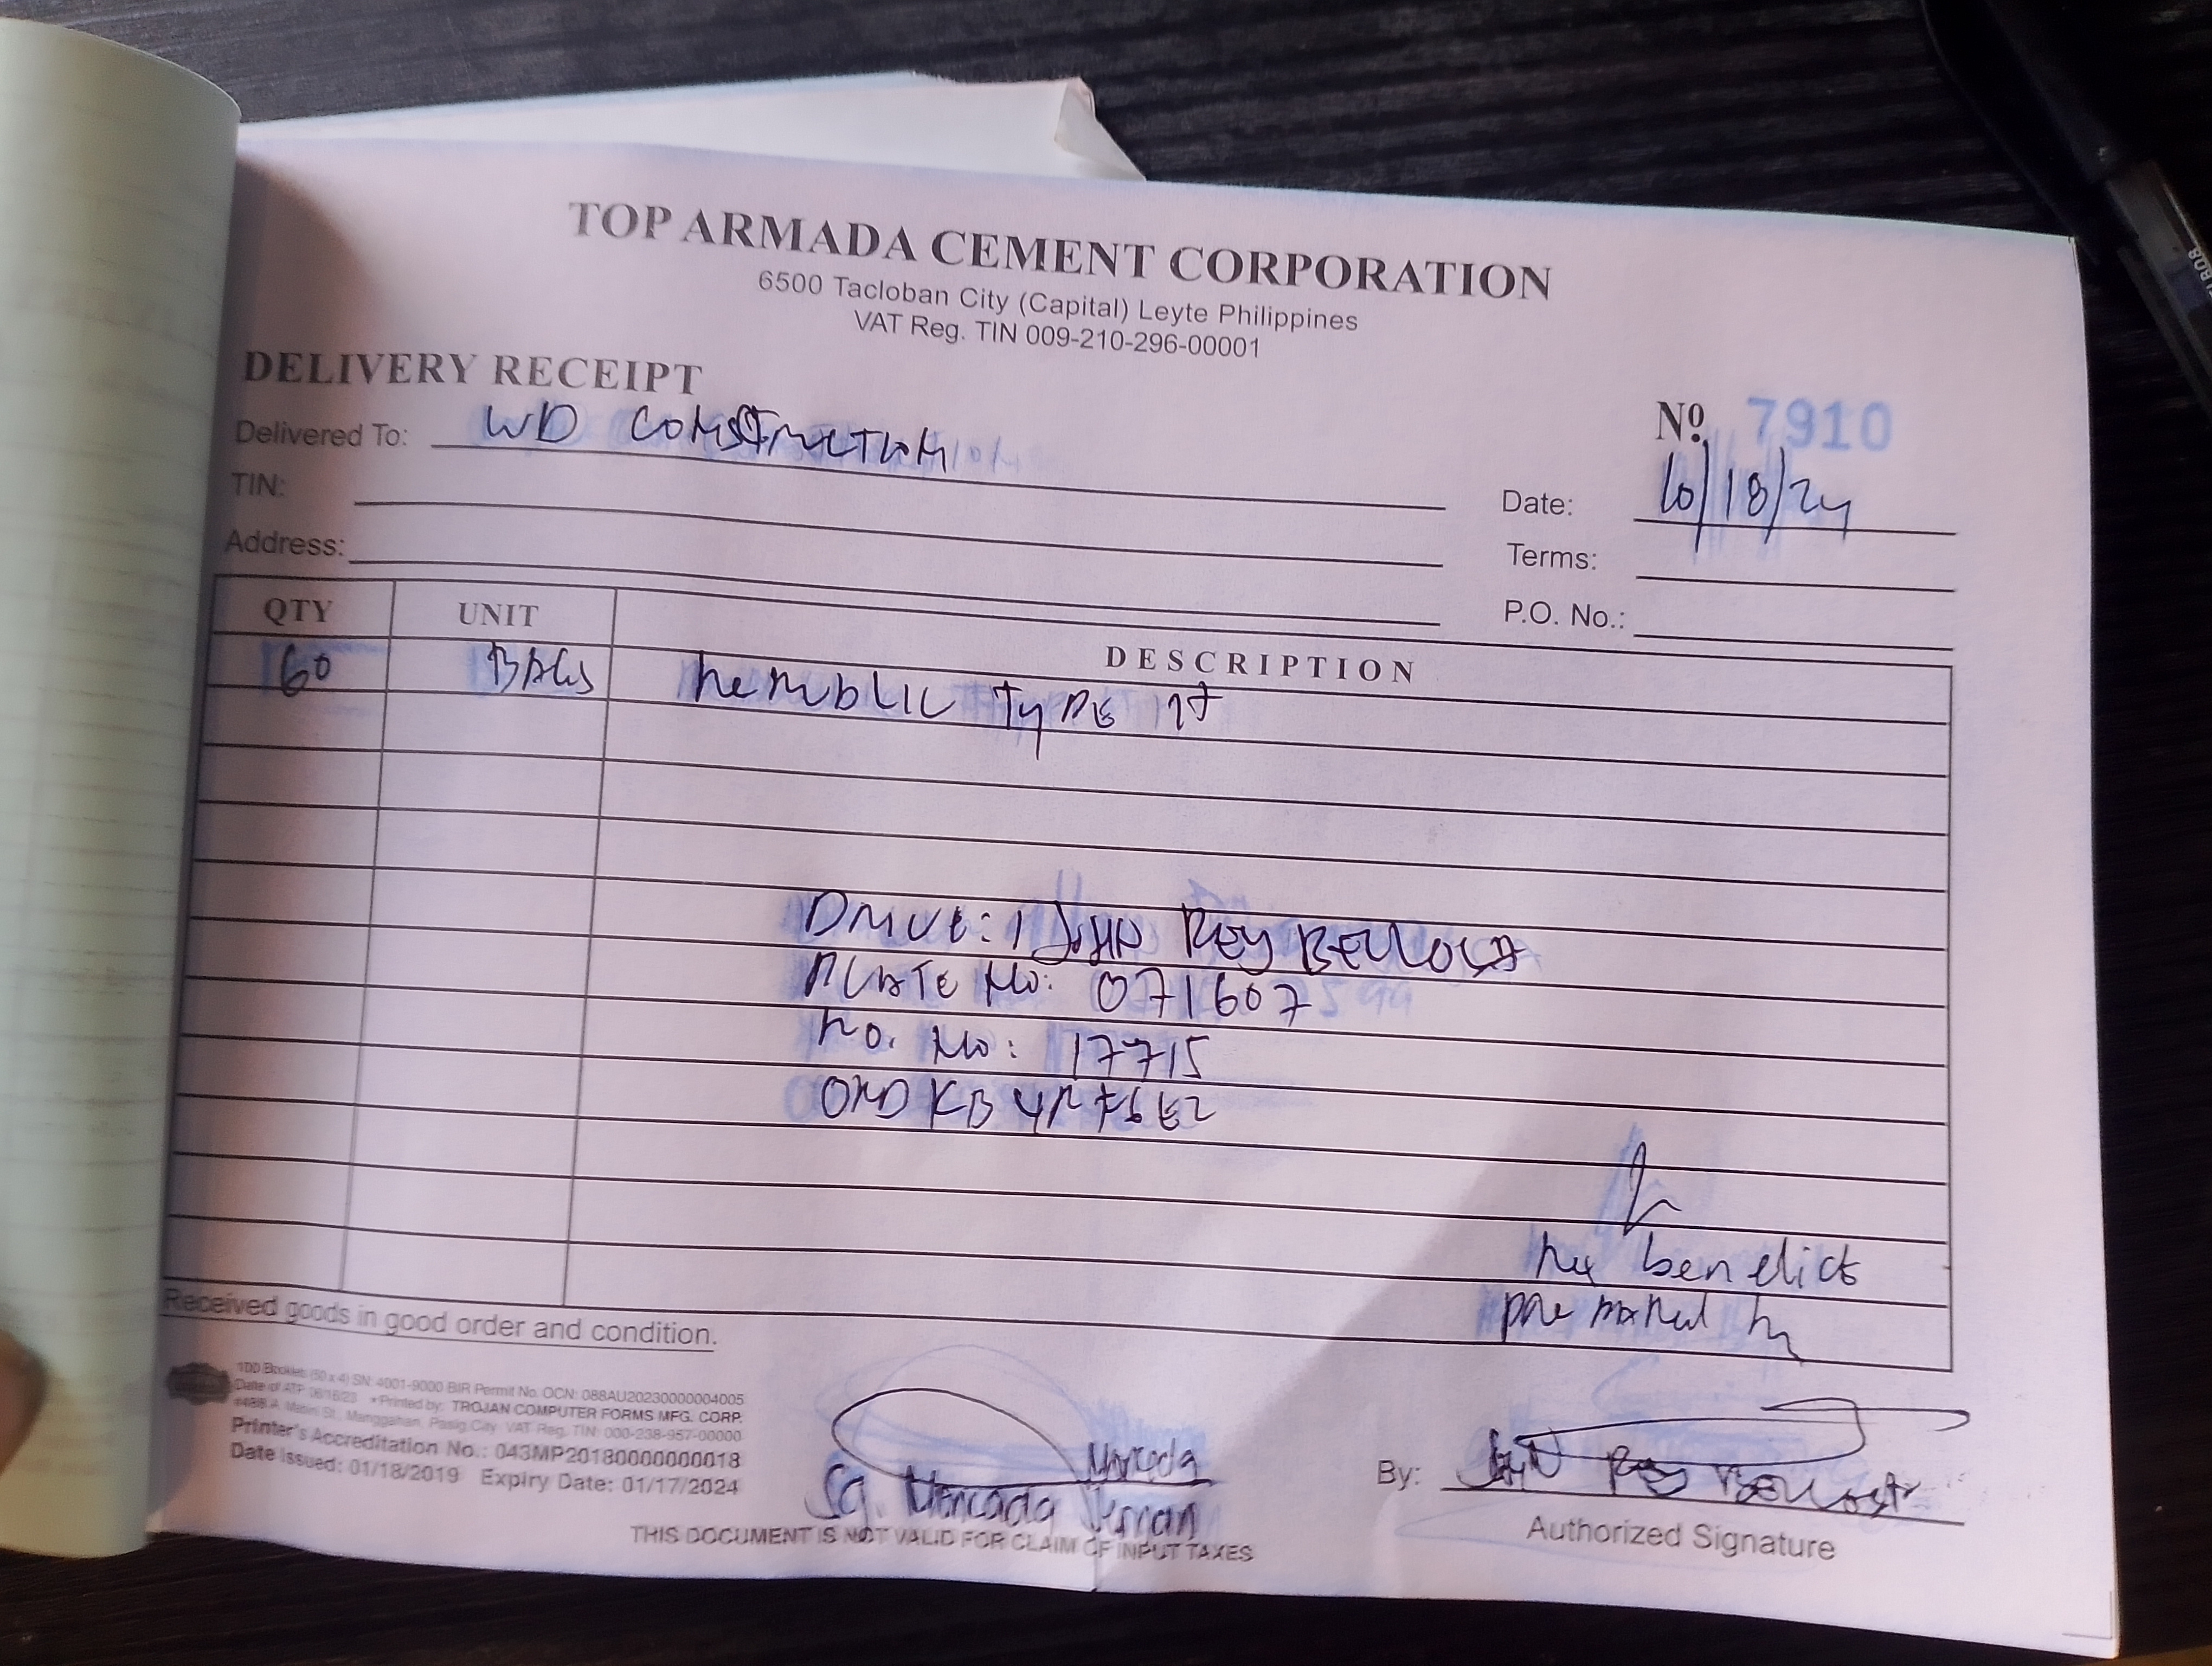 TOP ARMADA CEMENT CORPORATION
6500 Tacloban City (Capital) Leyte Philippines
VAT Reg. TIN 009-210-296-00001
DELIVERY RECEIPT
Nº 7910
Delivered To: WD CONSTRUCTION
TIN:
Date: 10/18/24
Address:
Terms:
P.O. No.:
QTY UNIT DESCRIPTION
60 BAGS REPUBLIC TYPE 1T
DRIVE: JOHN REY BELLOSA
PLATE NO: 071607
PO. NO: 17715
benedict
Received goods in good order and condition.
100 Booklets (50 x 4) SN: 4001-9000 BIR Permit No. OCN: 088AU20230000004005
Date of ATP 06/16/23 • Printed by: TROJAN COMPUTER FORMS MFG. CORP.
Manggahan, Pasig City VAT Reg. TIN: 000-238-957-00000
Printer's Accreditation No.: 043MP20180000000018
Date Issued: 01/18/2019 Expiry Date: 01/17/2024
Sg. Mercada
By: JOHN REY BELLOSA
Authorized Signature
THIS DOCUMENT IS NOT VALID FOR CLAIM OF INPUT TAXES